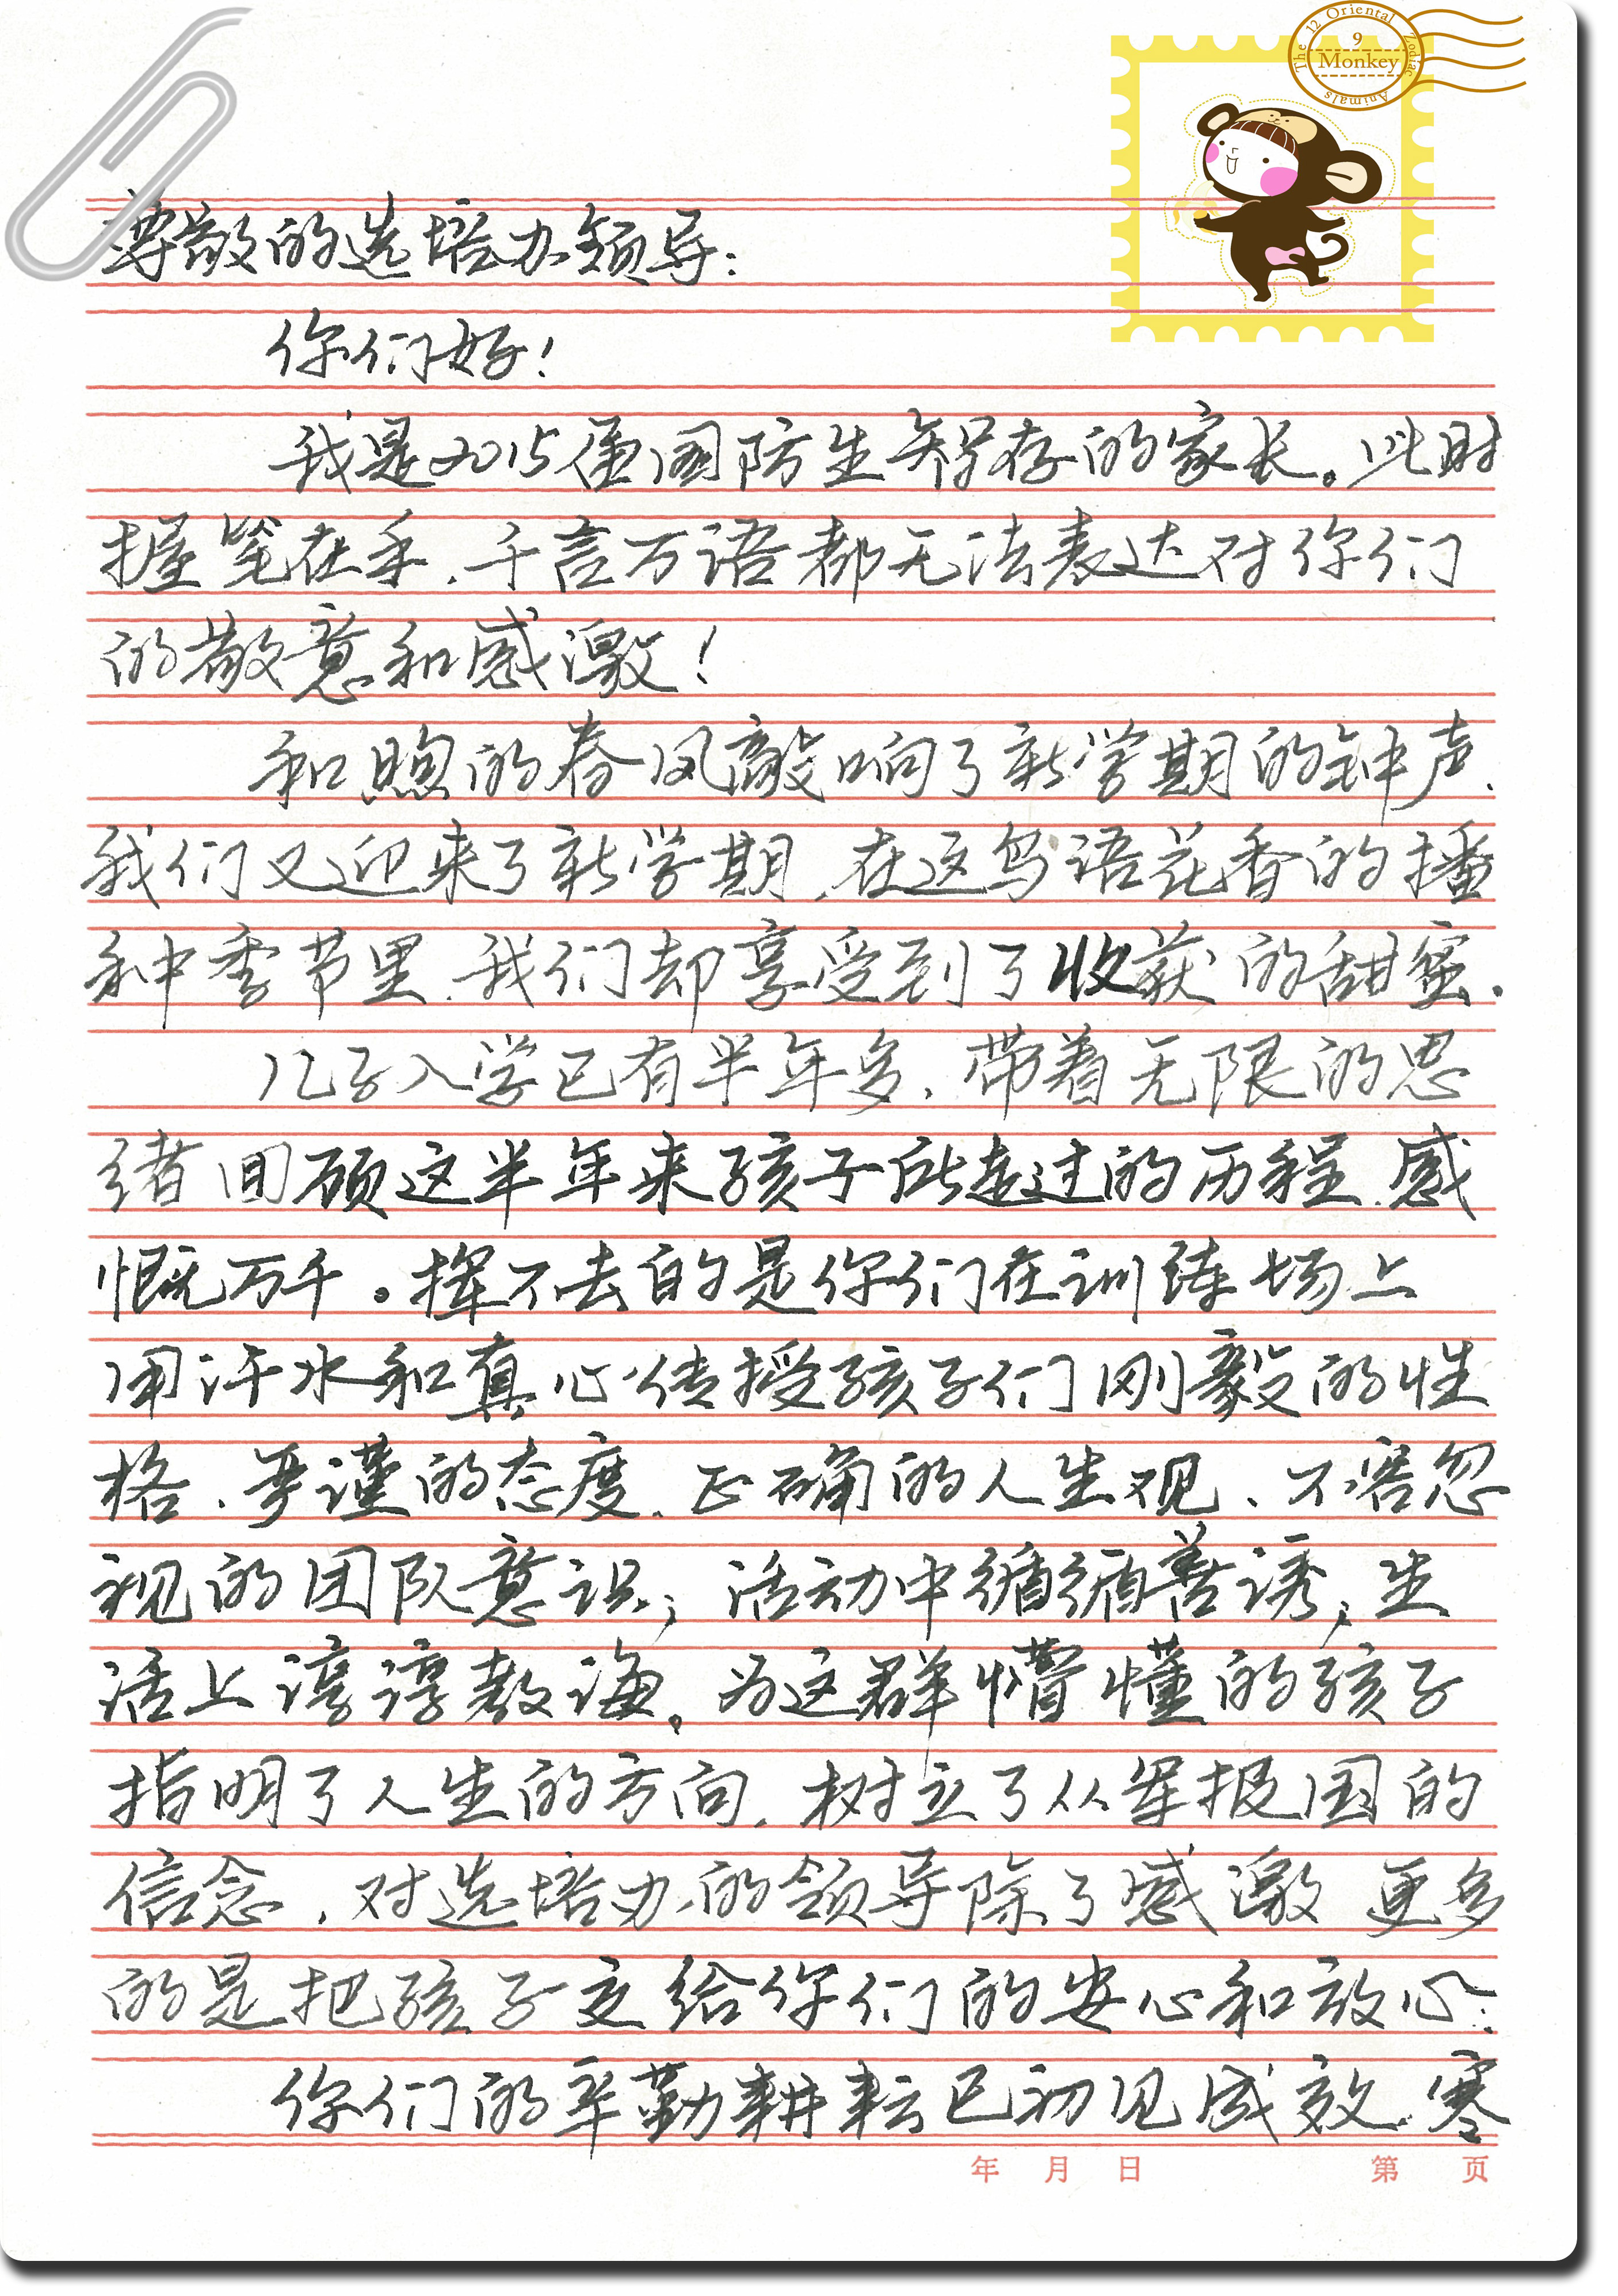 The 12 Oriental Zodiac Animals
9
Monkey
尊敬的选培办领导:
你们好!
我是2015届国防生 的家长。此时
握笔在手,千言万语都无法表达对你们
的敬意和感激!
和煦的春风敲响了新学期的钟声,
我们又迎来了新学期,在这鸟语花香的播
种季节里,我们却享受到了收获的甜蜜.
儿子入学已有半年多,带着无限的思
绪回顾这半年来孩子所走过的历程,感
慨万千。挥不去的是你们在训练场上
用汗水和真心传授孩子们刚毅的性
格、严谨的态度、正确的人生观、不容忽
视的团队意识;活动中循循善诱;生
活上谆谆教诲。为这群懵懂的孩子
指明了人生的方向,树立了从军报国的
信念,对选培办的领导除了感激 更多
的是把孩子交给你们的安心和放心:
你们的辛勤耕耘已初见成效,寒
年 月 日 第 页